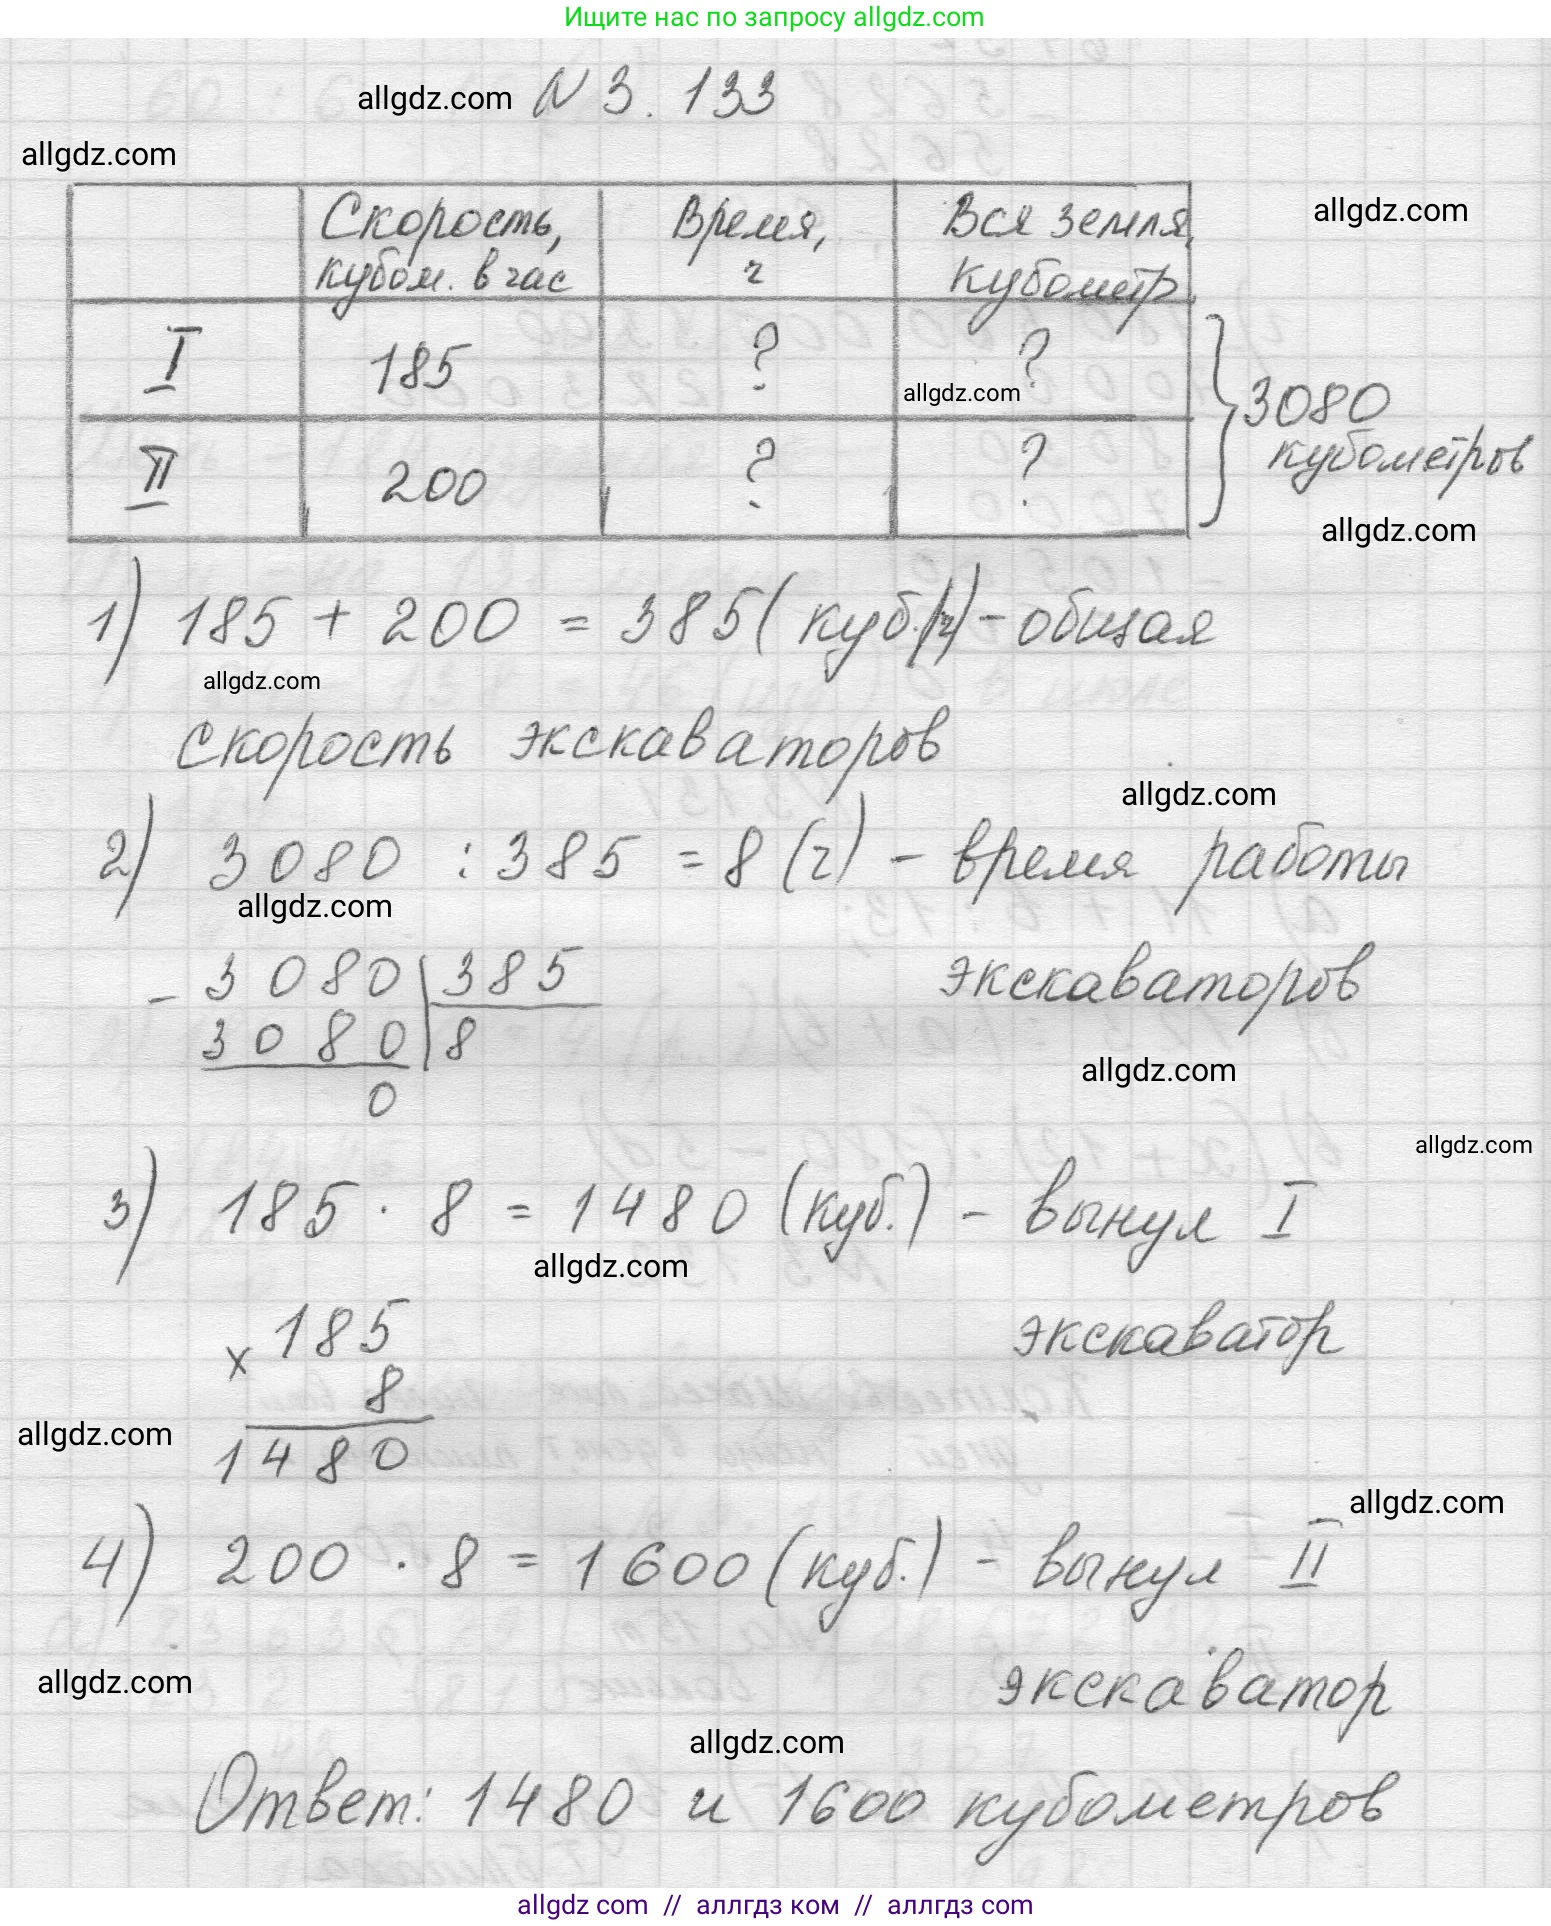 Ищите нас по запросу allgdz.com
allgdz.com N 3.133
allgdz.com
Скорость, Время, Вся земля,
кубом. в час ч кубометр
allgdz.com
I 185 ? ?
allgdz.com
3080
кубометров
II 200 ? ?
allgdz.com
1) 185 + 200 = 385 (куб./ч) - общая
allgdz.com
скорость экскаваторов
allgdz.com
2) 3080 : 385 = 8 (ч) - время работы
allgdz.com
экскаваторов
- 3080 | 385
3080 | 8
0
allgdz.com
allgdz.com
3) 185 · 8 = 1480 (куб.) - вынул I
allgdz.com
экскаватор
× 185
8
1480
allgdz.com
allgdz.com
4) 200 · 8 = 1600 (куб.) - вынул II
экскаватор
allgdz.com
allgdz.com
Ответ: 1480 и 1600 кубометров
allgdz.com // аллгдз ком // аллгдз com